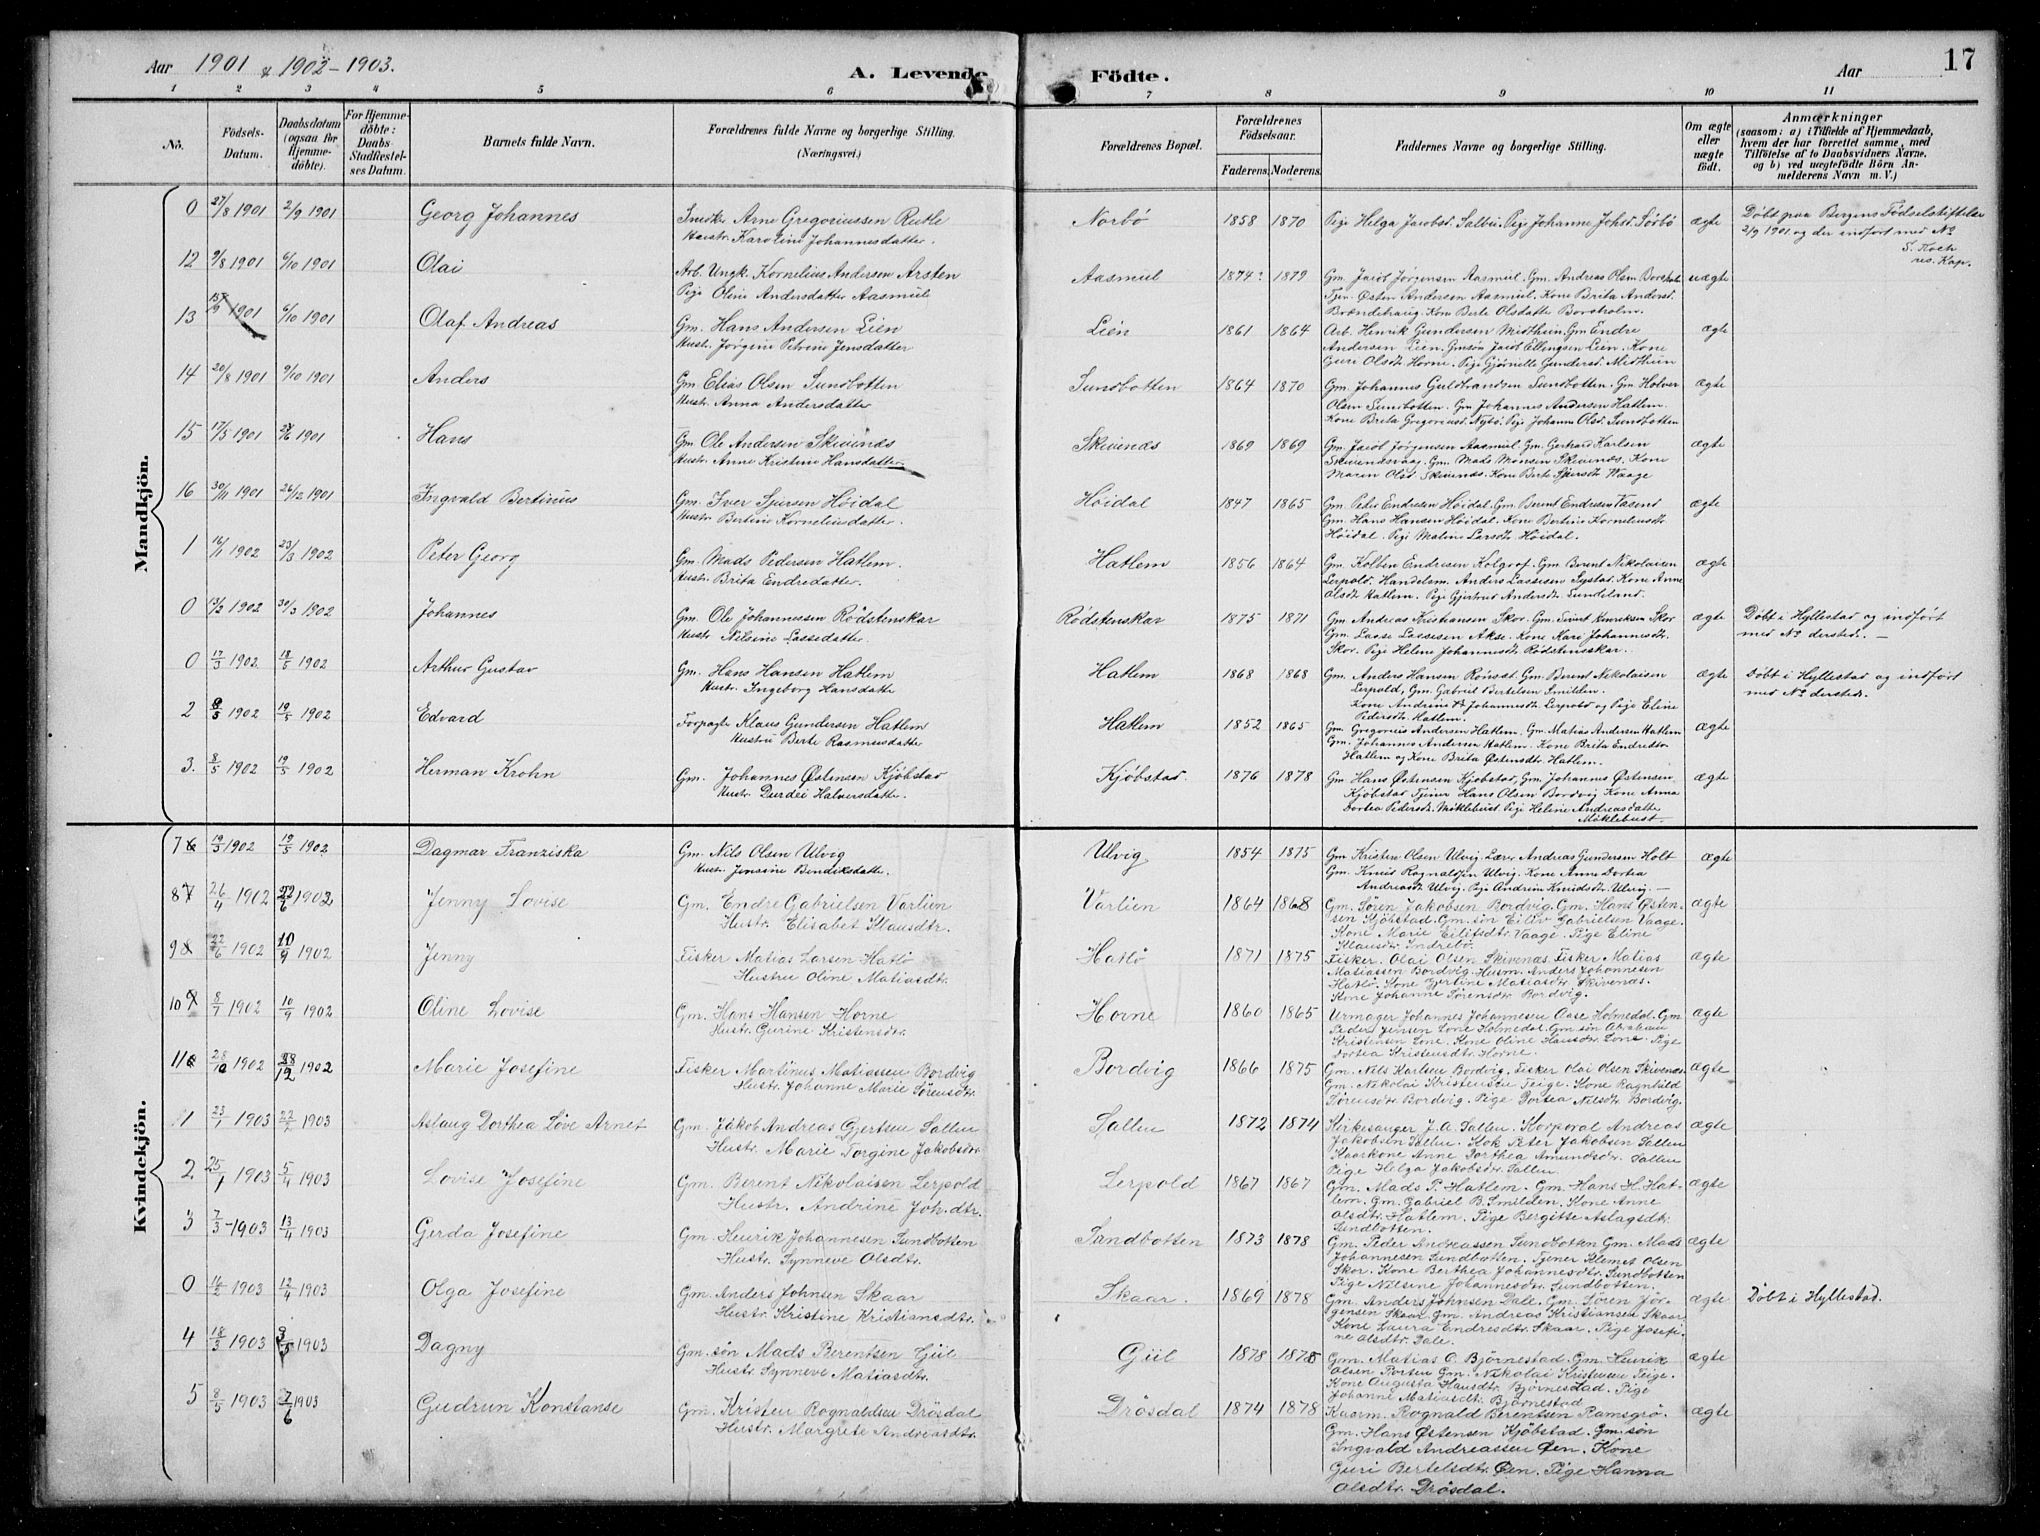 Aar 1901 & 1902 – 1903.
A. Levende Födte.
Aar
17
1 2 3 4 5 6 7 8 9 10 11
No.
Födsels-Datum.
Daabsdatum (ogsaa for Hjemmedöbte).
For Hjemmedöbte: Daabs Stadfæstelses Datum.
Barnets fulde Navn.
Forældrenes fulde Navne og borgerlige Stilling. (Næringsvei.)
Forældrenes Bopæl.
Forældrenes Födselsaar.
Faderens. Moderens.
Faddernes Navne og borgerlige Stilling.
Om ægte eller uægte födt.
Anmærkninger
(saasom: a) i Tilfælde af Hjemmedaab, hvem der har forrettet samme, med Tilföielse af to Daabsvidners Navne, og b) ved uægtefödte Börn Anmelderens Navn m. V.)
Mandkjön.
0 27/8 1901 2/9 1901 Georg Johannes Snedker Arne Gregoriussen Rutle Norbö 1858 1870 Pige Helga Jacobsd. Sallen. Pige Johanne Johsd. Sørbö ægte Döbt paa Bergens Födselstiftelse
Hustr. Karoline Johannesdatter. 2/9 1901 og der indført med No
S. Koch
res. Kap.
12 9/8 1901 6/10 1901 Olai Arb. Ungk. Kornelius Andersen Arsten Aasmul 1874? 1879 Gm. Jacob Jørgensen Aasmul. Gm. Andreas Olsen Borsholm uægte
Pige Oline Andersdatter Aasmul Tjen. Østen Andersen Aasmul. Kone Brita Andersd.
Brændehaug. Kone Berte Olsdatte Borsholm.
13 15/9 1901 6/10 1901 Olaf Andreas Gm. Hans Andersen Lien Lien 1861 1864 Arb. Henrik Gundersen Midthun. Gm Endre ægte
Hust. Jørgine Petrine Jensdatter Andersen Lien. Gmsøn Jacob Ellingsen Lien. Kone
Guri Olsdt Horne. Pige Gjørnille Gundersd. Midthun
14 20/8 1901 9/10 1901 Anders Gm Elias Olsen Sundbotten Sundbotten 1864 1870 Gm. Johannes Guldbrandsen Sundbotten. Gm. Halver ægte
Hustr. Anna Andersdatter Olsen Sundbotten. Gm Johannes Andersen Hatlem.
Kone Brita Gregoriusd. Nybö. Pige Johanne Olsd. Sundbotten
15 17/5 1901 1901 Hans Gm. Ole Andersen Skivenæs Skivenæs 1869 1869 Gm. Jacob Jørgensen Aasmul. Gm. Gerhard Karlsen ægte
Hustr. Anne Kristine Hansdatter Skivenæsvaag. Gm. Mads Monsen Skivenæs. Kone
Maren Olsd. Skivenæs. Kone Berte Sjursdt Vaage
16 30/11 1901 26/12 1901 Ingvald Bertinius Gm. Iver Sjursen Höidal Höidal 1847 1865 Gm. Peter Endresen Höidal. Gm. Bernt Endresen Vasend ægte
Hustr. Bertine Korneliusdatte. Gm. Hans Hansen Höidal. Kone Bertine Korneliusdt
Höidal. Pige Maline Larsdt Höidal.
1 16/1 1902 23/3 1902 Peter Georg Gm. Mads Pedersen Hatlem. Hatlem 1856 1864 Gm. Kolben Endresen Kolgrof. Gm. Bernt Nikolaisen ægte
Hustr. Brita Endredatter. Lerpold. Handelsm. Anders Lassesen Systad. Kone Anne
Olsdt Hatlem. Pige Gjertrud Andersdt Sundeland.
0 13/2 1902 30/3 1902 Johannes Gm. Ole Johannessen Rødstenskar Rødstenskar 1875 1871 Gm Andreas Kristiansen Skor. Gm. Sivert Henriksen Skor ægte Døbt i Hyllestad og indført
Hustr. Nilsine Lassedatter. Gm. Lasse Lassesen Akse. Kone Kari Johannesdt. med No dersted. —
Skor. Pige Helene Johannesdt Rødstensskar.
0 17/3 1902 18/5 1902 Arthur Gustav Gm. Hans Hansen Hatlem Hatlem 1868 1868 Gm. Anders Hansen Rönset. Gm. Bernt Nikolaisen ægte Døbt i Hyllestad og indført
Hustr. Ingeborg Hansdatte Lerpold, Gm. Gabriel Bertelsen Smilden. med No dersted.
Kone Andrine Johannesdt Lerpold og Pige Eline
Pedersdt Hatlem.
2 8/3 1902 19/5 1902 Edvard Forpagte Klaus Gundersen Hatlem Hatlem 1852 1865 Gm. Gregorius Andersen Hatlem. Gm. Matias Andersen Hatlem ægte
Hustru Berte Rasmusdatte Gm. Johannes Andersen Hatlem. Kone Brita Endredtr
Hatlem og Kone Brita Østensdt Hatlem.
3. 8/5 1902 19/5 1902 Herman Krohn Gm. Johannes Østensen Kjöbstad Kjöbstad. 1876 1878 Gm. Hans Østensen Kjöbstad, Gm. Johannes Østensen ægte
Hustr. Durdei Halversdatte. Kjöbstad Tjener Hans Olsen Bordvig Kone Anna
Dortea Pedersdt. Möklebust Pige Heline Andreasdatte
Möklebust.
Kvindekjön.
7 19/3 1902 19/5 1902 Dagmar Franziska Gm. Nils Olsen Ulvig Ulvig 1854 1875 Gm Kristen Olsen Ulvig. Lærer Andreas Gundersen Holt ægte
Hustr. Jensine Bendiksdatte. Gm. Knud Ragnaldsen Ulvig. Kone Anne Dortea
Andreasdt Ulvig. Pige Andrine Knudsdt Ulvig. —
8 26/4 1902 22/6 1902 Jenny Lovise Gm. Endre Gabrielsen Varlien Varlien 1864 1868 Gm. Søren Jakobsen Bordvig. Gm. Hans Østen- ægte
Hustr. Elisabet Klausdtr. sen Kjöbstad. Gm. søn Eiliv Gabrielsen Vaage.
Kone Marie Eilifsdtr. Vaage. Pige Eline
Klausdtr. Indrebö.
9 22/6 1902 10/9 1902 Jenny Fisker Matias Larsen Hatlö Hatlö 1871 1875 Fisker. Olai Olsen Skivenæs. Fisker Matias ægte
Hustru Oline Matiasdtr. Matiassen Bordvig. Husm. Anders Johannesen
Hatlö. Kone Bertine Matiasdtr. Skivenæs.
Kone Johanne Sørensdtr Bordvig.
10 8/7 1902 10/9 1902 Oline Lovise Gm. Hans Hansen Horne Horne 1860 1865 Urmager Johannes Johannesen Aase Holmedal. Gm ægte
Hustr. Gurine Kristensdtr. Peder Jensen Lone Holmedal. Gm søn Abraham
Kristensen Lone. Kone Oline Hansdtr. Lone. Pige
Dortea Kristensdtr. Horne.
11 28/10 1902 28/12 1902 Marie Josefine Fisker Martinus Matiassen Bordvig Bordvig 1866 1875 Gm. Nils Karlsen Bordvig. Fisker Olai Olsen Skivenæs. ægte
Hustr. Johanne Marie Sørensdtr Gm. Nikolai Kristensen Teige. Kone Ragnhild
Sørensdtr Bordvig. Pige Dortea Nilsdtr. Bordvig.
1 23/1 1903 22/2 1903 Aslaug Dorthea Löve Arnet Gm. Jakob Andreas Gjertsen Sallen Sallen 1872 1874 Kirkesanger J. A. Sallen. Korporal Andreas ægte
Hustr. Marie Torgine Jakobsdtr Jakobsen Sallen. Kok Peter Jakobsen Sallen
Kaarkone Anne Dorthea Amundsdtr. Sallen
Pige Helga Jakobsdtr Sallen.
2 25/1 1903 5/4 1903 Lovise Josefine Gm. Berent Nikolaisen Lerpold Lerpold 1867 1867 Gm. Mads P. Hatlem. Gm. Hans H. Hat- ægte
Hustr. Andrine Joh.dtr. lem. Gm. Gabriel B. Smilden. Kone Anne
Olsdtr Hatlem. Pige Bergitte Aslagsdtr.
Sundbotten.
3 7/3 1903 13/4 1903 Gerda Josefine Gm. Henrik Johannesen Sundbotten Sandbotten 1873 1878 Gm. Peder Andreassen Sundbotten Gm. Mads ægte
Hustr. Synneve Olsdtr. Johannesen Sundbotten. Tjener Klemet Olsen
Skor. Kone Berthea Johannesdtr. Sundbotten
Pige Nilsine Johannesdtr Sundbotten.
0 16/2 1903 12/4 1903 Olga Josefine Gm. Anders Johnsen Skaar Skaar. 1869 1878 Gm. Anders Johnsen Dale. Gm. Søren Jör- ægte Döbt i Hyllestad.
Hustr. Kristine Kristiansdtr. gensen Skaar. Gm. Andreas Kristiansen Skaar
Kone Laura Endresdtr. Skaar. Pige Josefi-
ne Olsdtr. Dale.
4 18/3 1903 3/5 1903 Dagny Gm. søn Mads Berentsen Giil Giil 1878 1878 Gm. Matias O. Björnestad. Gm. Henrik ægte
Hustr. Synneve Matiasdtr. Olsen Porten Gm. Nikolai Kristensen Teige.
Kone Augusta Hansdtr. Björnestad. Pige
Johanne Matiasdtr. Björnestad
5 8/5 1903 7/6 1903 Gudrun Konstanse Gm. Kristen Rognaldsen Drösdal Drösdal 1874 1878 Kaarm. Rognald Berentsen Ramsgrö. ægte
Hustr. Margrete Andreasdtr. Gm. Hans Østensen Kjöbstad. Gm. søn
Ingvald Andreassen Øen. Kone
Guri Bertelsdtr. Øen. Pige Hanna
Olsdtr. Drösdal.